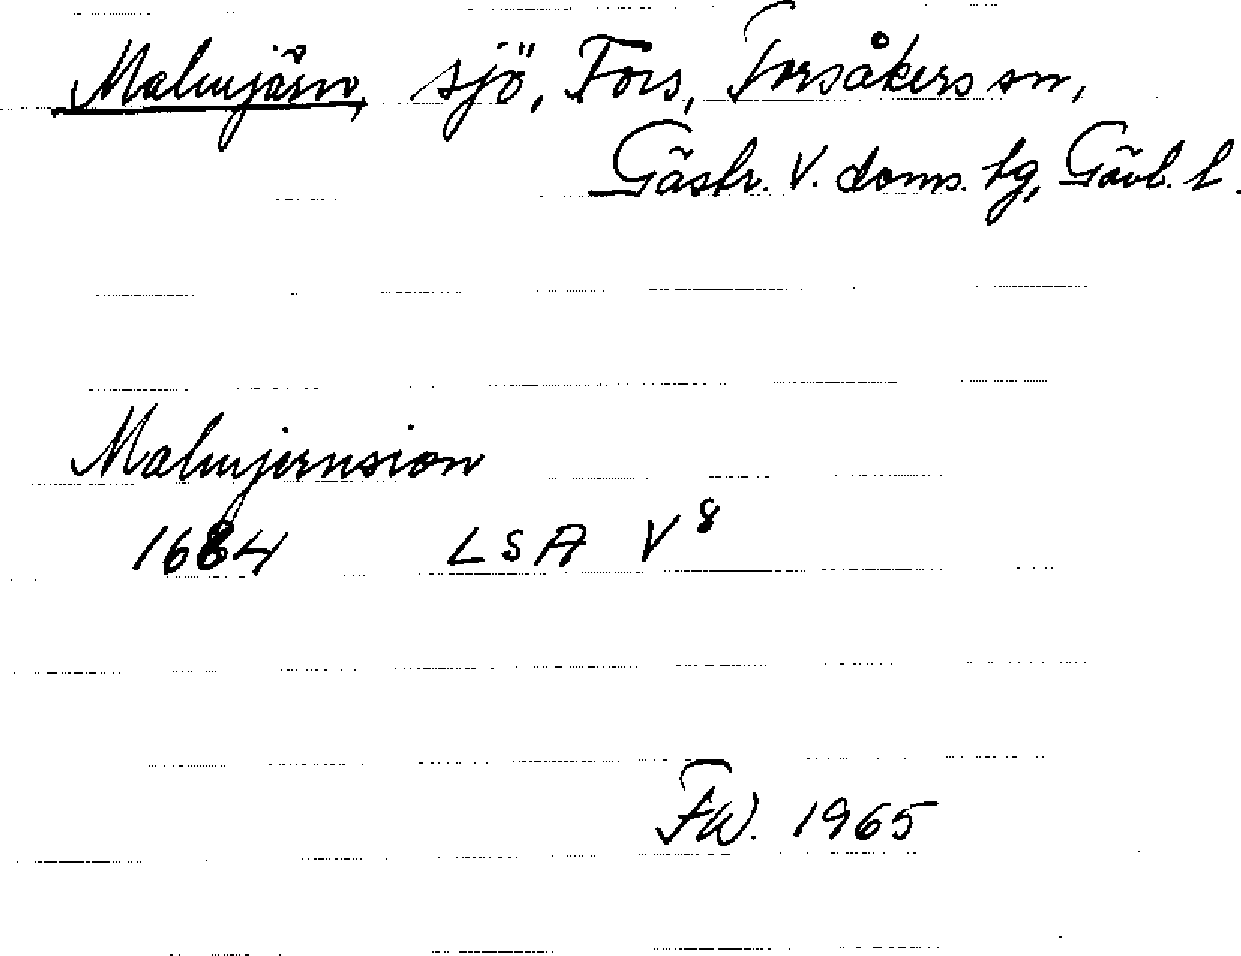 Malmjärn, sjö, Fors, Torsåkers sn,
Gästr. V. doms. tg, Gävl. l.
Malmjernsion
1684 LSA V 8
FW. 1965